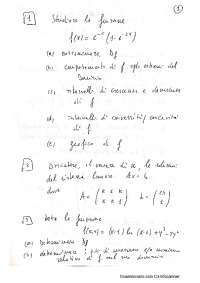 (1)
1 Studiare la funzione
f(x) = e^{-x} (1 - e^{-2x})
(a) determinare Df
(b) comportamento di f agli estremi del
Dominio
(c) intervalli di crescenza e decrescenza
di f
(d) intervalli di convessità / concavità
di f
(e) grafico di f
2 al variare di le soluzioni
del sistema lineare Ax = b
dove
A = b =
3 Data la funzione
(a) determinare Df
(b) determinare
relativi di f nel suo dominio
Scansionato con CamScanner